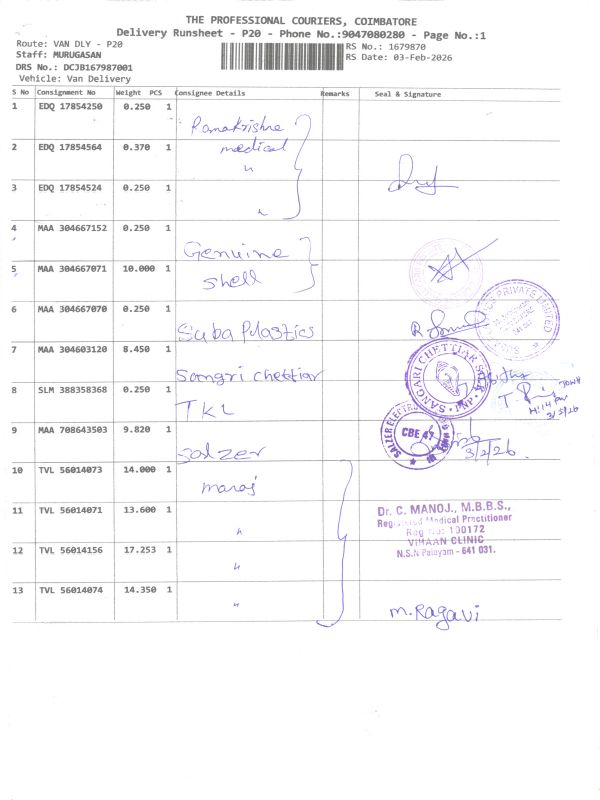 THE PROFESSIONAL COURIERS, COIMBATORE
Delivery Runsheet - P20 - Phone No.:9047080280 - Page No.:1
Route: VAN DLY - P20
RS No.: 1679870
Staff: MURUGASAN
RS Date: 03-Feb-2026
DRS No.: DCJB167987001
Vehicle: Van Delivery
S No Consignment No Weight PCS Consignee Details Remarks Seal & Signature
1 EDQ 17854250 0.250 1 Ramakrishna
2 EDQ 17854564 0.370 1 medical
"
3 EDQ 17854524 0.250 1
"
4 MAA 304667152 0.250 1 Genuine
5 MAA 304667071 10.000 1 Shell
6 MAA 304667070 0.250 1 Suba Plastics
7 MAA 304603120 8.450 1 Sangri chettiar
SANGARI CHETTIAR
8 SLM 388358368 0.250 1 TKL
9 MAA 708643503 9.820 1 Salzer
SALZER ELECTRO
CBE 47
3/2/26
10 TVL 56014073 14.000 1 manoj
11 TVL 56014071 13.600 1 "
Dr. C. MANOJ., M.B.B.S.,
Registered Medical Practitioner
Reg No: 100172
VIHAAN CLINIC
N.S.N Palayam - 641 031.
12 TVL 56014156 17.253 1 "
13 TVL 56014074 14.350 1 "
M.Ragavi